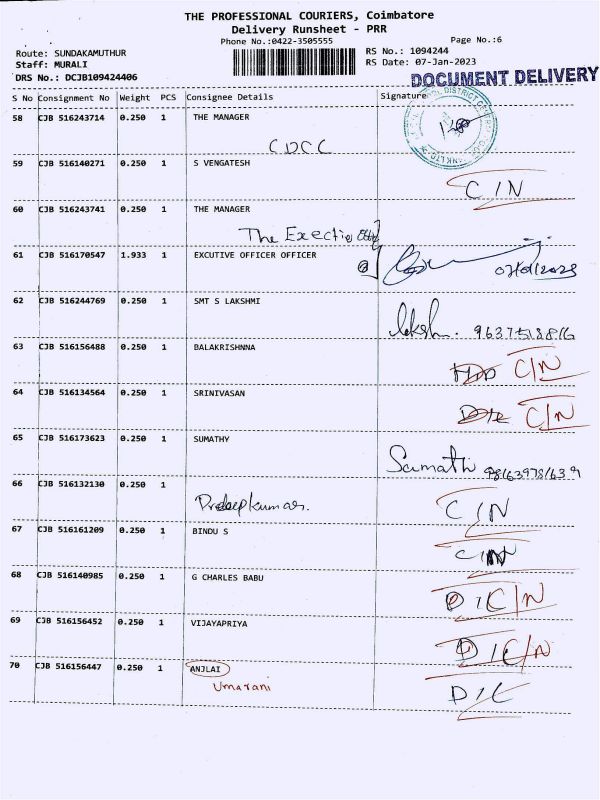 THE PROFESSIONAL COURIERS, Coimbatore
Delivery Runsheet - PRR
Phone No.:0422-3505555 Page No.:6
Route: SUNDAKAMUTHUR RS No.: 1094244
Staff: MURALI RS Date: 07-Jan-2023
DRS No.: DCJB109424406
DOCUMENT DELIVERY
S No Consignment No Weight PCS Consignee Details Signature
58 CJB 516243714 0.250 1 THE MANAGER
CDCC
59 CJB 516140271 0.250 1 S VENGATESH
C/N
60 CJB 516243741 0.250 1 THE MANAGER
The
61 CJB 516170547 1.933 1 EXCUTIVE OFFICER OFFICER
07/01/2023
62 CJB 516244769 0.250 1 SMT S LAKSHMI
63 CJB 516156488 0.250 1 BALAKRISHNNA
C/N
64 CJB 516134564 0.250 1 SRINIVASAN
C/N
65 CJB 516173623 0.250 1 SUMATHY
Sumathi
66 CJB 516132130 0.250 1
Pradeepkumar.
C/N
67 CJB 516161209 0.250 1 BINDU S
C/N
68 CJB 516140985 0.250 1 G CHARLES BABU
D/C/N
69 CJB 516156452 0.250 1 VIJAYAPRIYA
D/C/N
70 CJB 516156447 0.250 1 ANJLAI
Umarani
D/C